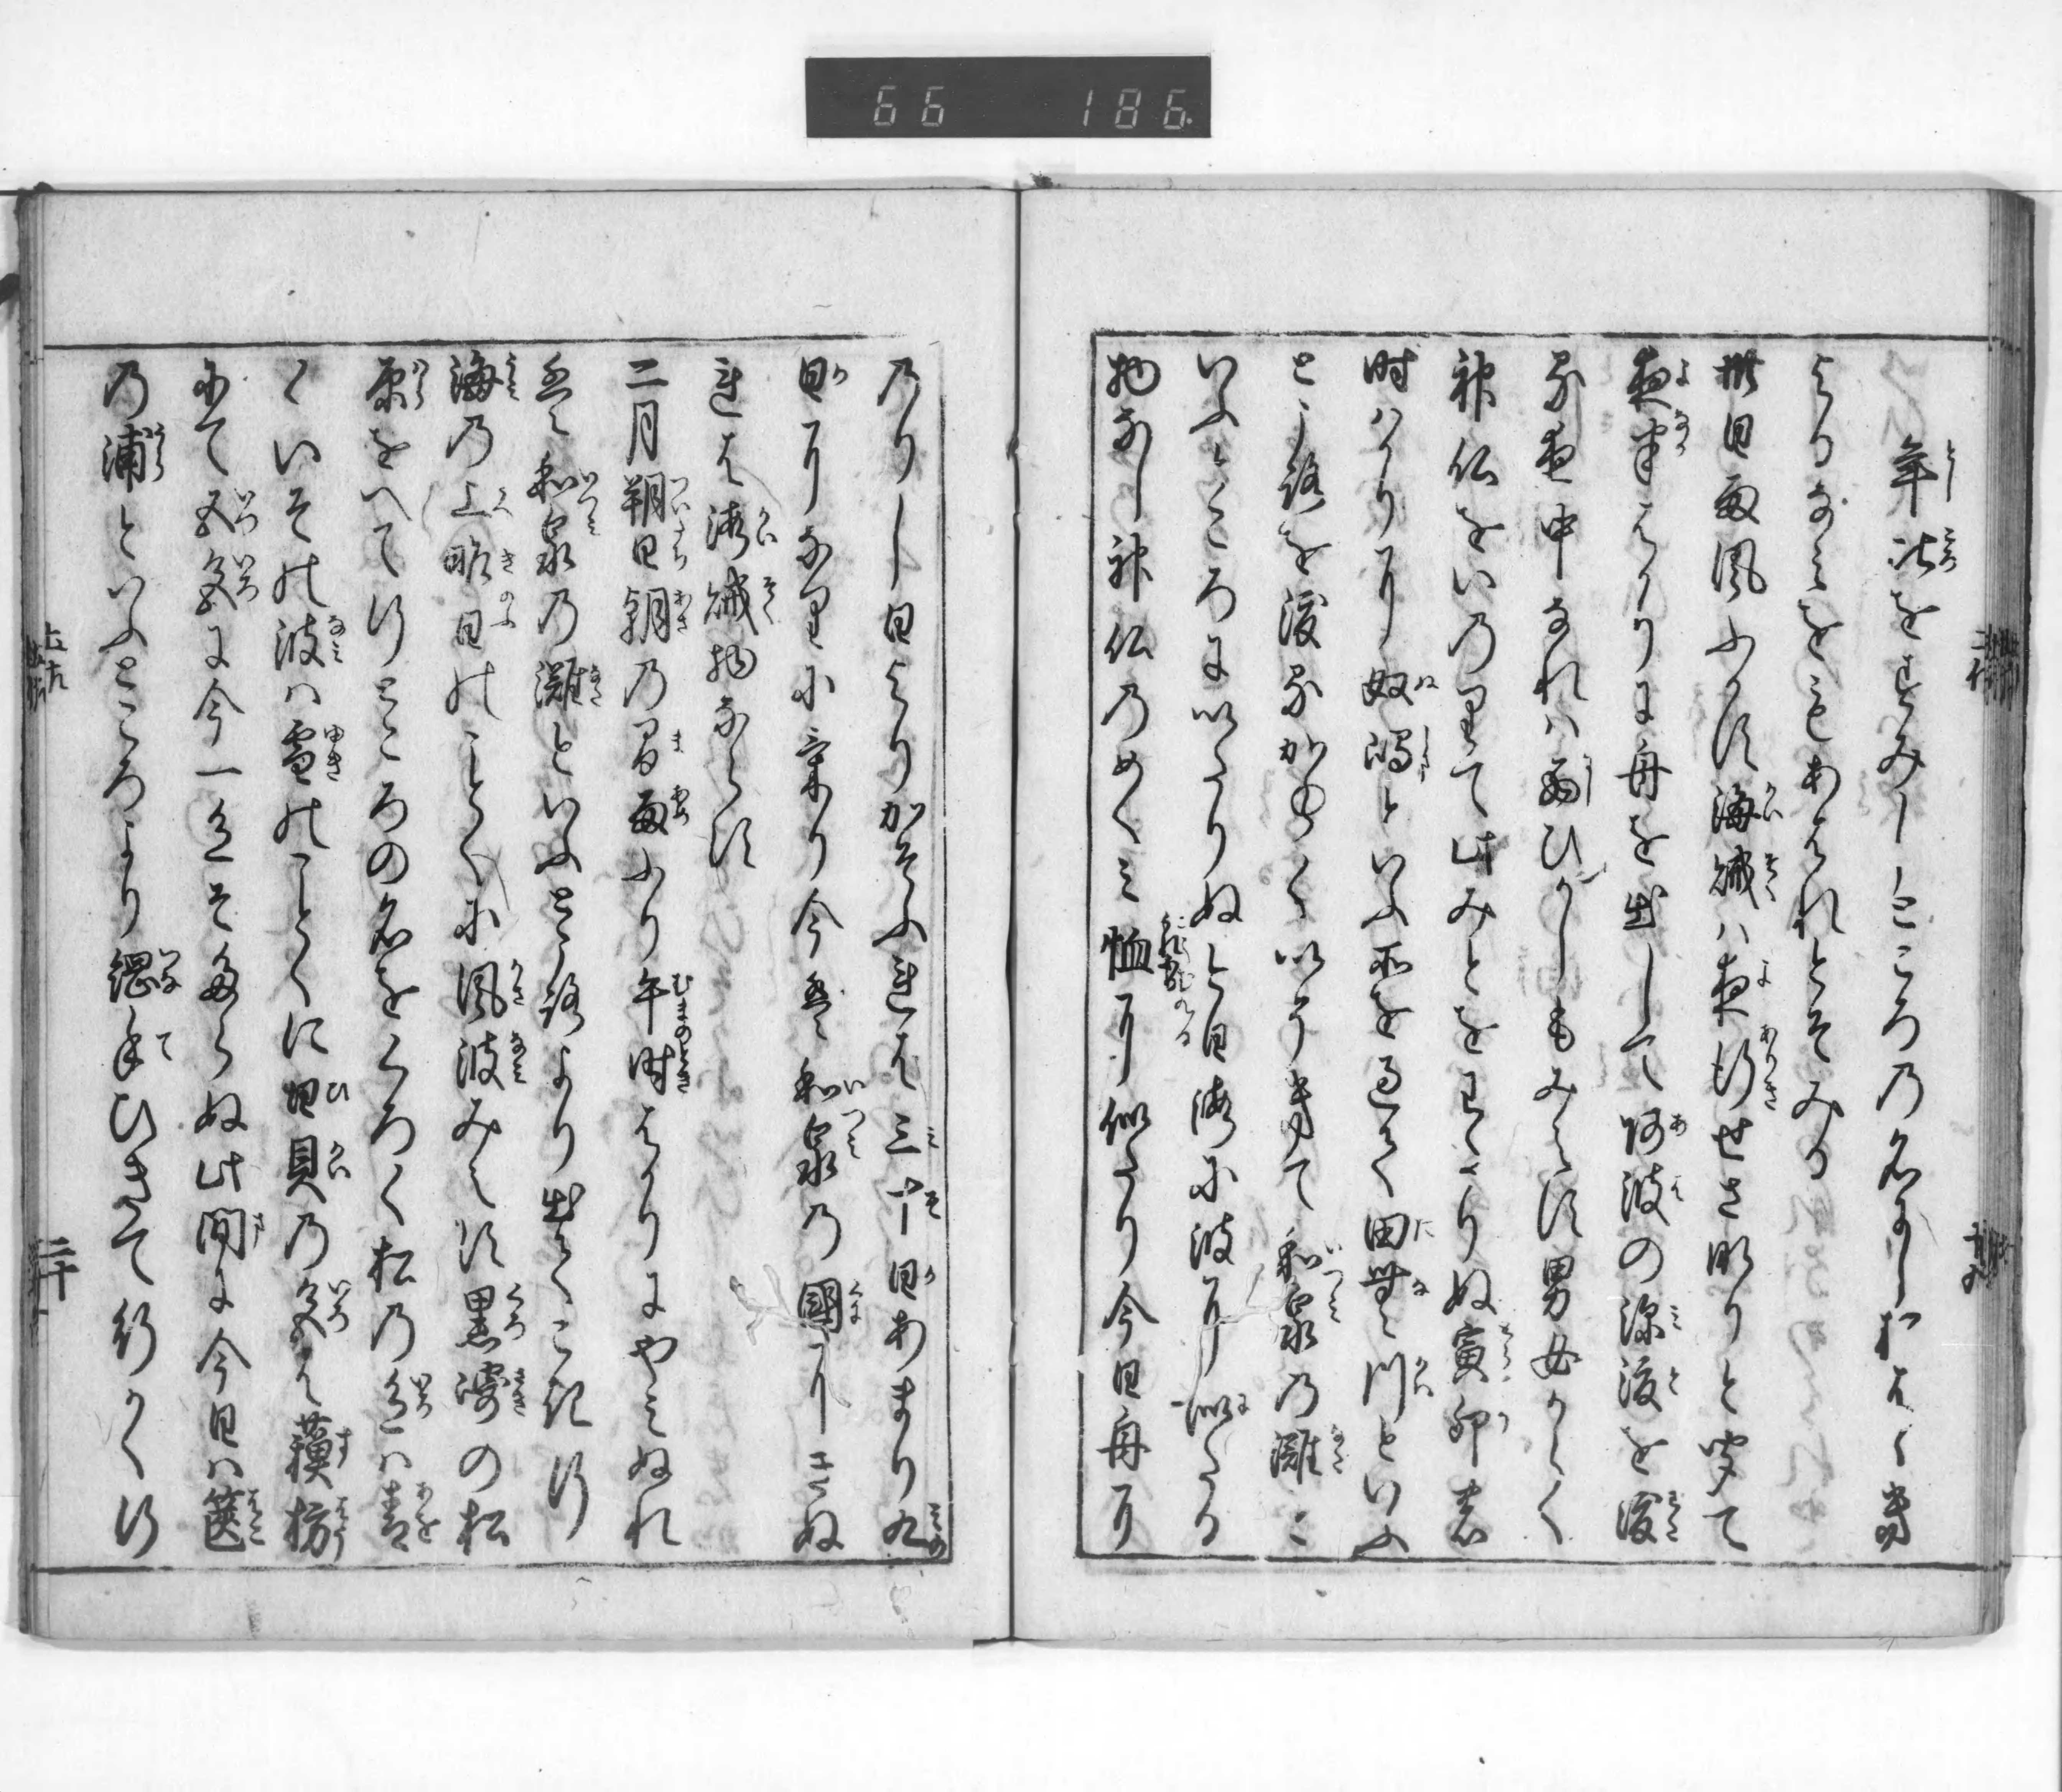 66 186
年比をすみしところの名にしおへはき
よるなみをもあはれとそみる
卅日雨風ふかす海賊は夜行せさ也りと聞て
夜半はかりに舟を出して阿波の深渡を渡
る夜中なれは西ひかしもみえす男女からく
神仏をいのりて此みとをわたりぬ寅卯の
時はかりに奴嶋といふ所を過て田無川といふ
ところを渡るからくいそきて和泉の灘と
いふところにいたりぬけふ海に波に似たる
物なし神仏のめくみ恤に似たり今日舟に
のりし日よりかそふれは三十日あまり九
日になりにけり今は和泉の國にきぬ
れは海賊物ならす
二月朔日朝の間雨ふり午時はかりにやみぬれ
は和泉の灘といふところより出てこき行
海の上昨日のことくに風波みえす黒崎の松
原をへて行ところの名をくろく松の色は青
くいその波は雪のことくに貝の色は蘇枋
にて五色に今一色そ多らぬ此間に今日は篋
の浦といふところより綱手ひきて行かく行
二十